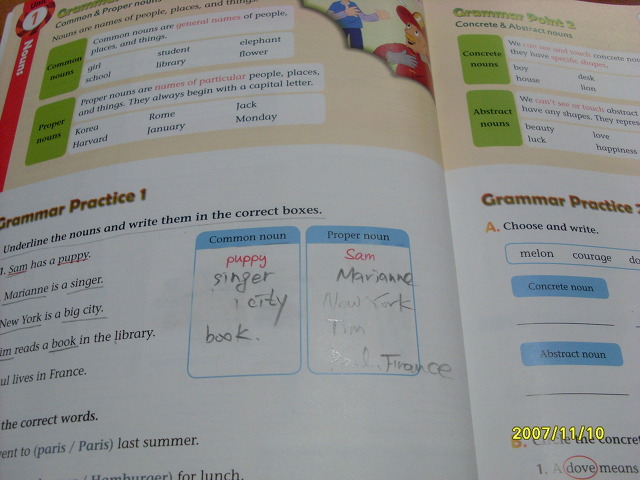 Unit
1
Nouns
Grammar
Common & Proper nouns
Nouns are names of people, places, and things.
Common nouns
Common nouns are general names of people,
places, and things.
girl student elephant
school library flower
Proper nouns
Proper nouns are names of particular people, places,
and things. They always begin with a capital letter.
Korea Rome Jack
Harvard January Monday
Grammar Practice 1
Underline the nouns and write them in the correct boxes.
1. Sam has a puppy.
Marianne is a singer.
New York is a big city.
reads a book in the library.
lives in France.
Common noun
puppy
singer
city
book.
Proper noun
Sam
Marianne
New York
Tim
Paul, Firance
the correct words.
(paris / Paris) last summer.
/ Hamburger) for lunch.
Grammar Point 2
Concrete & Abstract nouns
Concrete nouns
We can see and touch concrete
they have specific shapes.
boy desk
house lion
Abstract nouns
We can't see or touch abstract
have any shapes. They
beauty love
luck happiness
Grammar Practice 2
A. Choose and write.
melon courage
Concrete noun
Abstract noun
B. Circle the
1. A dove means
2007/11/10